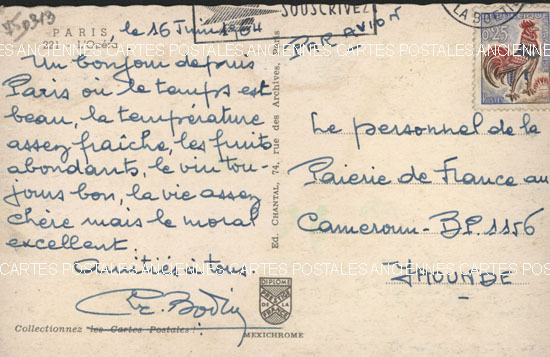 PARIS
le 16 Juin 64
Un bonjour depuis
Paris où le temps est
beau, la température
assez fraîche, les fruits
abondants, le vin tou-
jours bon, la vie assez
chère mais le moral
excellent.
Amitiés à tous
Collectionnez les Cartes Postales !
Ed. CHANTAL, 74, rue des Archives, Paris
DIPLOME
PRESTIGE
DE LA
FRANCE
MEXICHROME
SOUSCRIVEZ
PAR AVION
0,25
Le personnel de la
Paierie de France au
Cameroun - BP. 1156
YAOUNDE
CARTES POSTALES ANCIENNES CARTES POSTALES ANCIENNES